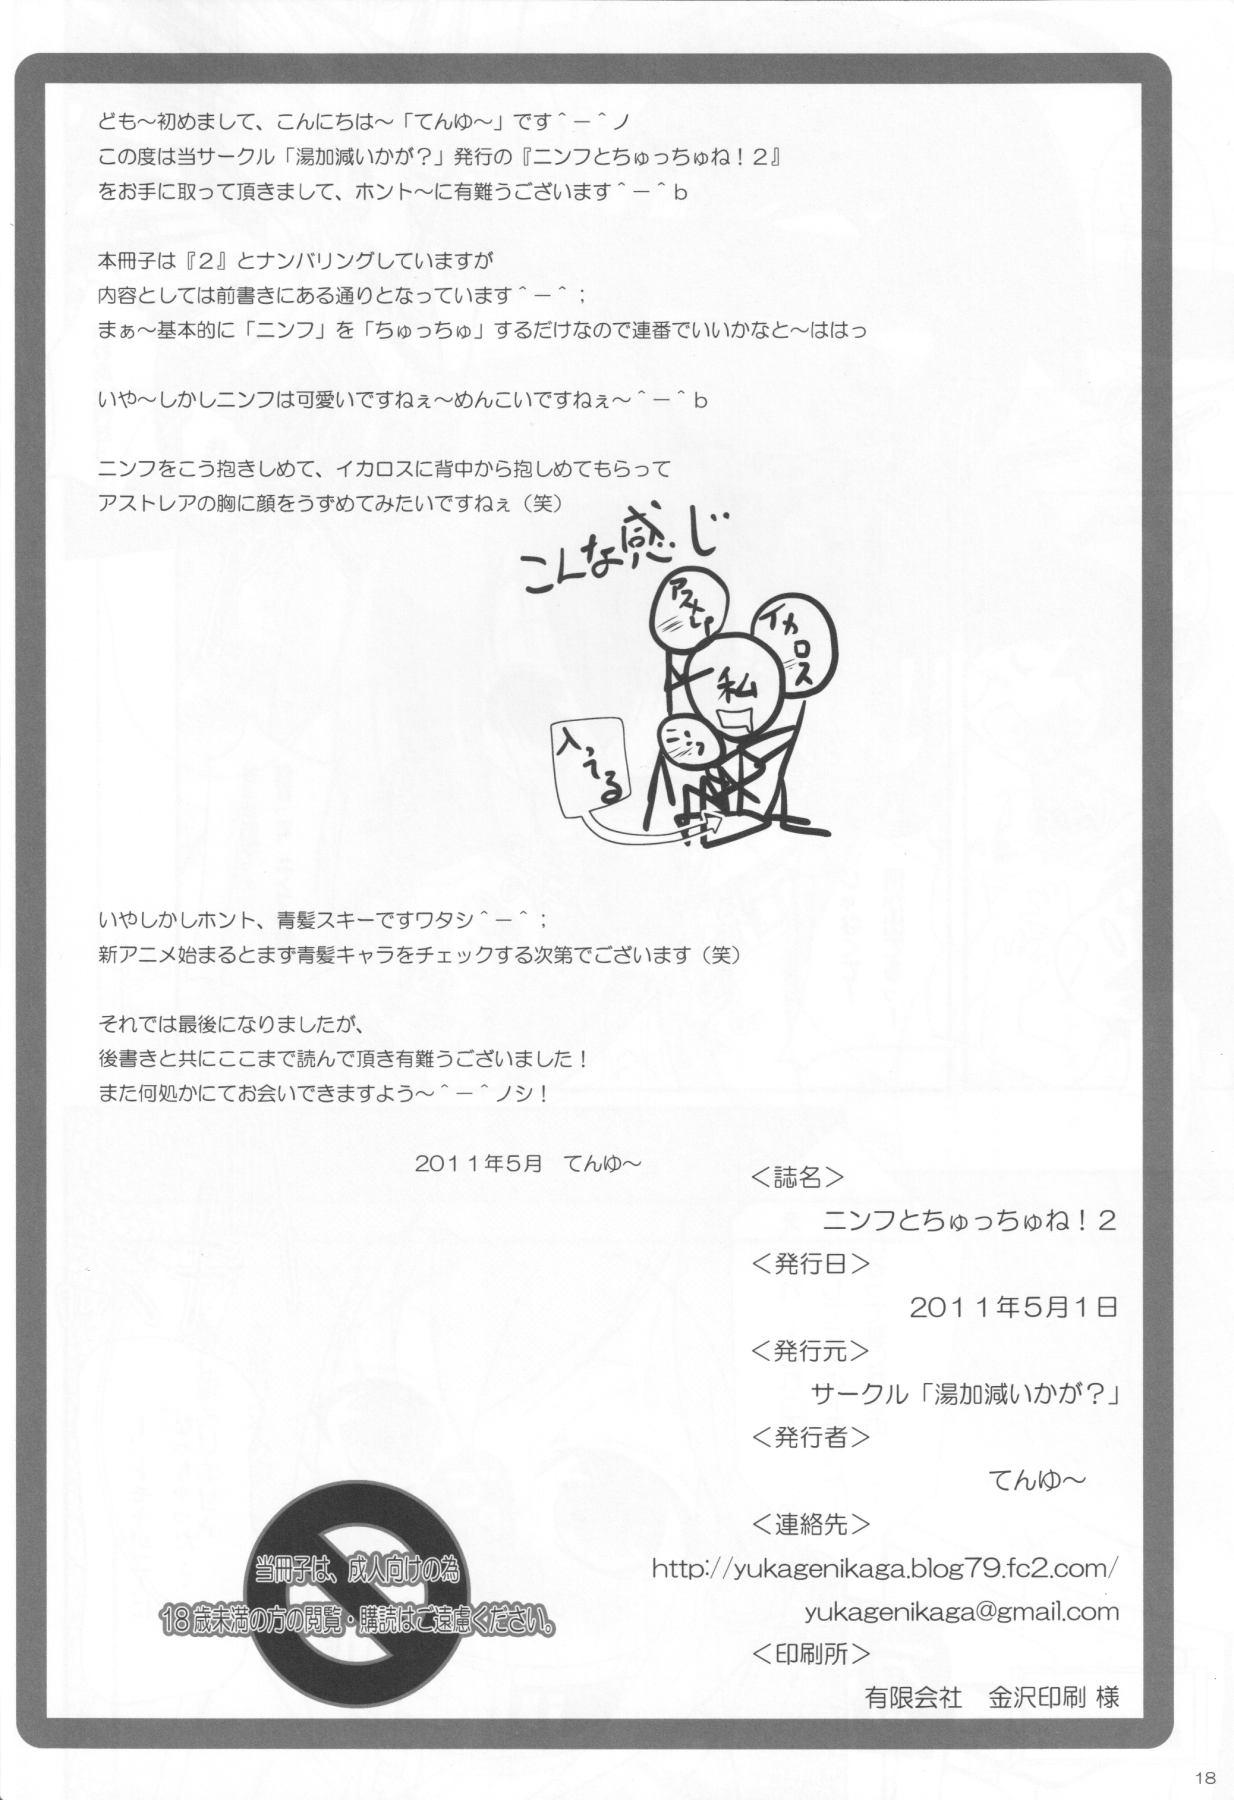 ども～初めまして、こんにちは～「てんゆ～」です＾－＾ノ
この度は当サークル「湯加減いかが？」発行の『ニンフとちゅっちゅね！２』
をお手に取って頂きまして、ホント～に有難うございます＾－＾ｂ
本冊子は『２』とナンバリングしていますが
内容としては前書きにある通りとなっています＾－＾；
まぁ～基本的に「ニンフ」を「ちゅっちゅ」するだけなので連番でいいかなと～ははっ
いや～しかしニンフは可愛いですねぇ～めんこいですねぇ～＾－＾ｂ
ニンフをこう抱きしめて、イカロスに背中から抱しめてもらって
アストレアの胸に顔をうずめてみたいですねぇ（笑）
こんな感じ
イカロス
私
ニンフ
入ってる
いやしかしホント、青髪スキーですワタシ＾－＾；
新アニメ始まるとまず青髪キャラをチェックする次第でございます（笑）
それでは最後になりましたが、
後書きと共にここまで読んで頂き有難うございました！
また何処かにてお会いできますよう～＾－＾ノシ！
２０１１年５月　てんゆ～
＜誌名＞
ニンフとちゅっちゅね！２
＜発行日＞
２０１１年５月１日
＜発行元＞
サークル「湯加減いかが？」
＜発行者＞
てんゆ～
＜連絡先＞
http://yukagenikaga.blog79.fc2.com/
yukagenikaga@gmail.com
＜印刷所＞
有限会社　金沢印刷 様
当冊子は、成人向けの為
18歳未満の方の閲覧・購読はご遠慮ください。
18